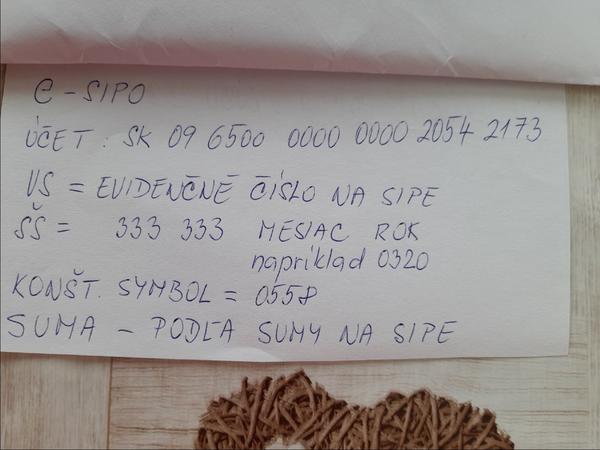 e-SIPO
ÚČET: SK 09 6500 0000 0000 2054 2173
VS = EVIDENČNÉ ČÍSLO NA SIPE
ŠŠ = 333 333 MESIAC ROK
napríklad 0320
KONŠT. SYMBOL = 0558
SUMA - PODĽA SUMY NA SIPE